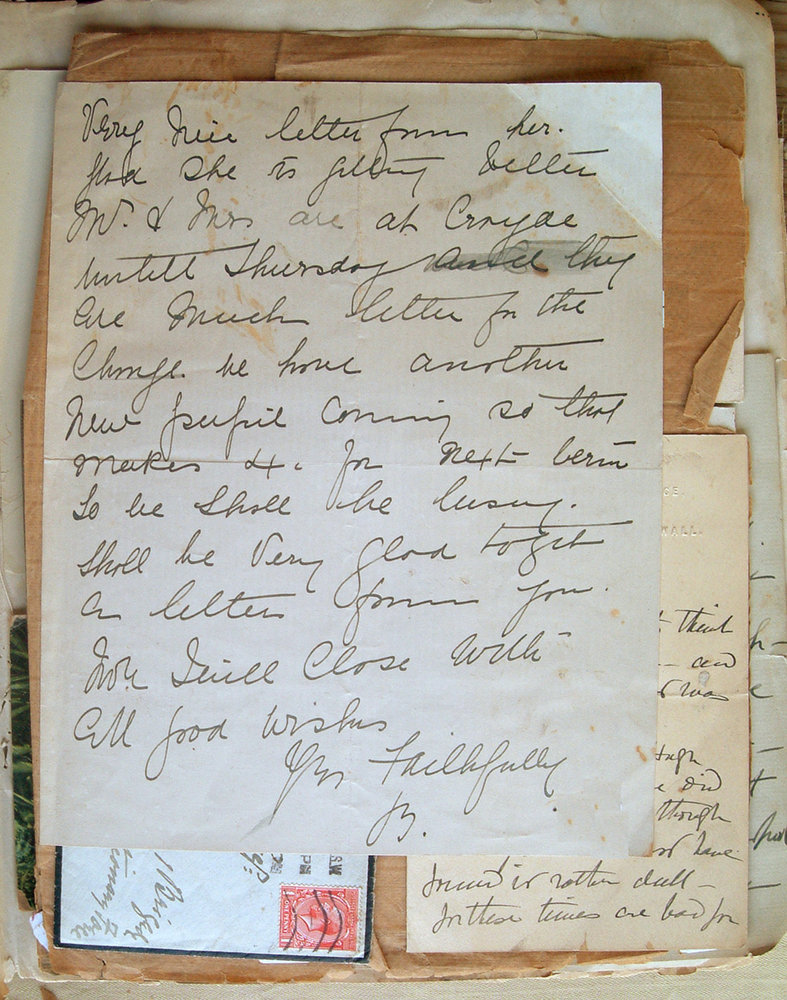 Very Nice letter from her.
glad she is getting better
Mr. & Mrs are at Croyde
untill Thursday they
are much better for the
Change. we have another
New pupil Coming so that
makes 4. for next term
So we shall be busy.
Shall be Very glad to get
a letter from you.
Now I will Close With
All good wishes
Yrs Faithfully
B.
CE.
WALL.
think
and
was
though
did
though
have
found is rather dull —
for these times are bad for